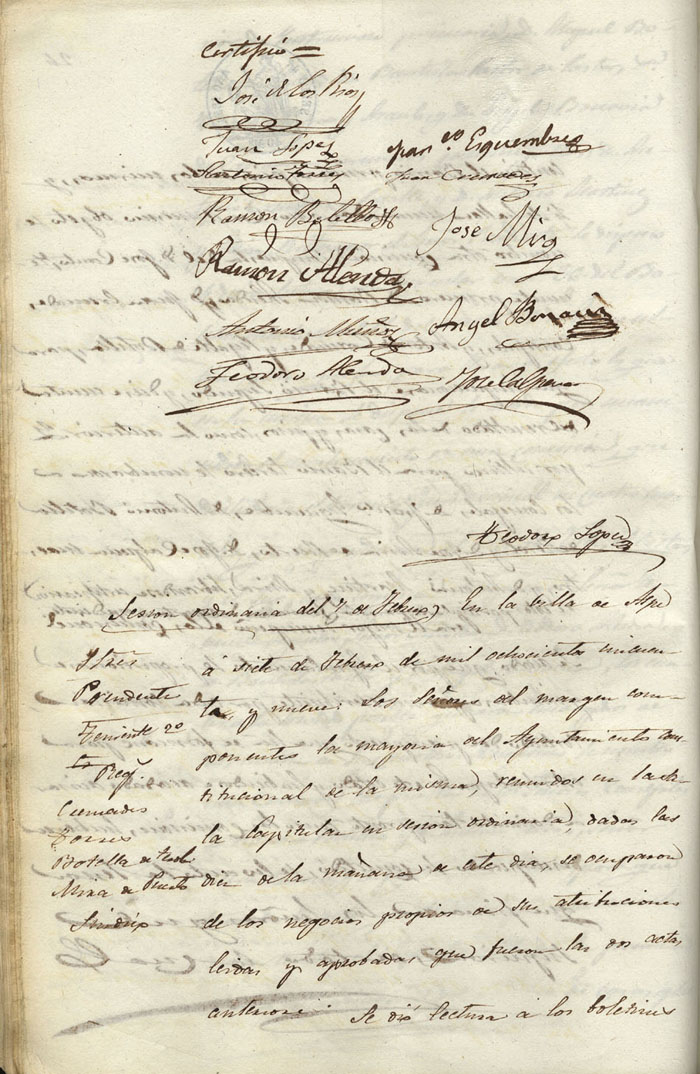 Certifico =
José de los Ríos
Juan Lopez
Antonio Torres
Fran.co Esquembre
Juan Cremades
Ramon Botella
Jose Mira
Ramon Alenda
Antonio Muñoz
Angel Bonavia
Teodoro Alenda
Jose Calpena
Teodoro Lopez
Sesion ordinaria del 7 de Febrero) En la villa de Aspe
Sres
Presidente
Teniente 2º
Reg.s
Cremades
Torres
Botella de
Mira de
Sindico
á siete de Febrero de mil ochocientos cincuen-
ta y nueve: Los Señores del margen com-
ponentes la mayoria del Ayuntamiento Cons-
titucional de la misma, reunidos en la Sa-
la Capitular en sesion ordinaria, dadas las
diez de la mañana de este dia, se ocuparon
de los negocios propios de sus atribuciones
leidas y aprobadas que fueron las dos actas
anteriores. Se dió lectura á los boletines